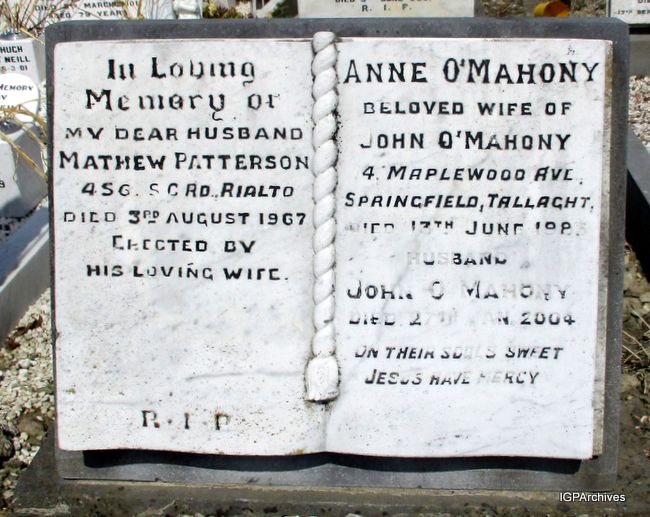 In Loving
Memory of
MY DEAR HUSBAND
MATHEW PATTERSON
456. S.C.RD., RIALTO
DIED 3RD AUGUST 1967
ERECTED BY
HIS LOVING WIFE.
R.I.P
ANNE O'MAHONY
BELOVED WIFE OF
JOHN O'MAHONY
4, MAPLEWOOD AVE,
SPRINGFIELD, TALLAGHT.
DIED 13TH JUNE 1983
HUSBAND
JOHN O MAHONY
DIED 27TH JAN. 2004
ON THEIR SOULS SWEET
JESUS HAVE MERCY
R. I. P.
HUGH
NEILL
5-3-01
MEMORY
IGPArchives